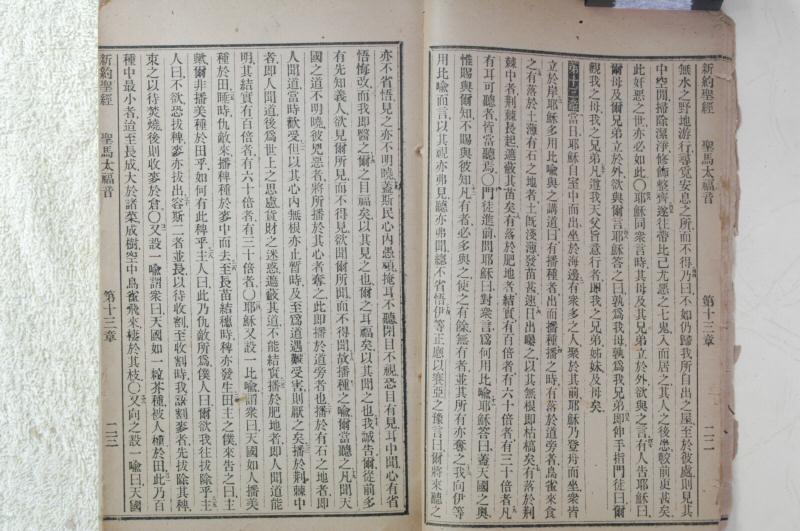 新約聖經　聖馬太福音　第十三章　二二
無水之野地游行尋覓安息之所而不得乃曰不如仍歸我所自出之屋至於彼處則見其
中空閒掃除潔淨修飾整齊遂往帶比己尤惡之七鬼入而居之其人之後患較前更甚矣
此奸惡之世亦必如此〇耶穌同衆言時其母及其兄弟立於外欲與之言有人告耶穌曰
爾母及爾兄弟立於外欲與爾言耶穌答之曰孰爲我母孰爲我兄弟即伸手指門徒曰爾
觀我之母我之兄弟凡遵我天父旨意行者即我之兄弟姊妹及母矣
第十三章當日耶穌自室中而出坐於海邊有衆多之人聚於其前耶穌乃登舟而坐衆皆
立於岸耶穌多用比喻與之講道曰有播種者出而播種播之時有落於道旁者鳥雀來食
之有落於土薄有石之地者土既淺薄發苗甚速日出曝之以其無根即枯槁矣有落於荆
棘中者荆棘長起遮蔽其苗矣有落於肥地者結實有百倍者有六十倍者有三十倍者凡
有耳可聽者皆當聽焉〇門徒進前問耶穌曰對衆言爲何用比喻耶穌答曰蓋天國之奥
惟賜與爾知不賜與彼知凡有者必多與之使之有餘無有者並其所有亦奪之我向伊等
用比喻而言以其視亦弗見聽亦弗聞總不省悟伊等正應以賽亞之豫言曰爾將來聽之
亦不省悟見之亦不明曉蓋斯民心內愚頑掩耳不聽閉目不視恐目有見耳中聞心有省
悟悔改而我即醫之爾之目福矣以其見之也爾之耳福矣以其聞之也我誠告爾從前多
有先知義人欲見爾所見而不得見欲聞爾所聞而不得聞故播種之喻爾當聽之凡聞天
國之道不明曉彼兇惡者將所播於其心者奪之此即播於道旁者也播於有石之地者即
人聞道當時歡受但以其心內無根亦止暫時及至爲道遇艱受害則厭之矣播於荆棘中
者即人聞道後爲世上之思慮貨財之迷惑遮蔽其道不能結實播於肥地者即人聞道能
明其結實有百倍者有六十倍者有三十倍者〇耶穌又設一比喻謂衆曰天國如人播美
種於田睡時仇敵來播稗種於麥中而去至長苗結穗時稗亦發生田主之僕來告之曰主
歟爾非播美種於田乎如何有此稗乎主人曰此乃仇敵所爲僕人曰爾欲我往拔除乎主
人曰不欲恐拔稗麥亦拔出容斯二者並長以待收割至收割時我語割麥者先拔除其稗
束之以待焚燒後則收麥於倉〇又設一喻謂衆曰天國如一粒芥種被人植於田此乃百
種中最小者迨至長成大於諸菜成樹空中鳥雀飛來棲於其枝〇又向之設一喻曰天國
新約聖經　聖馬太福音　第十三章　二二